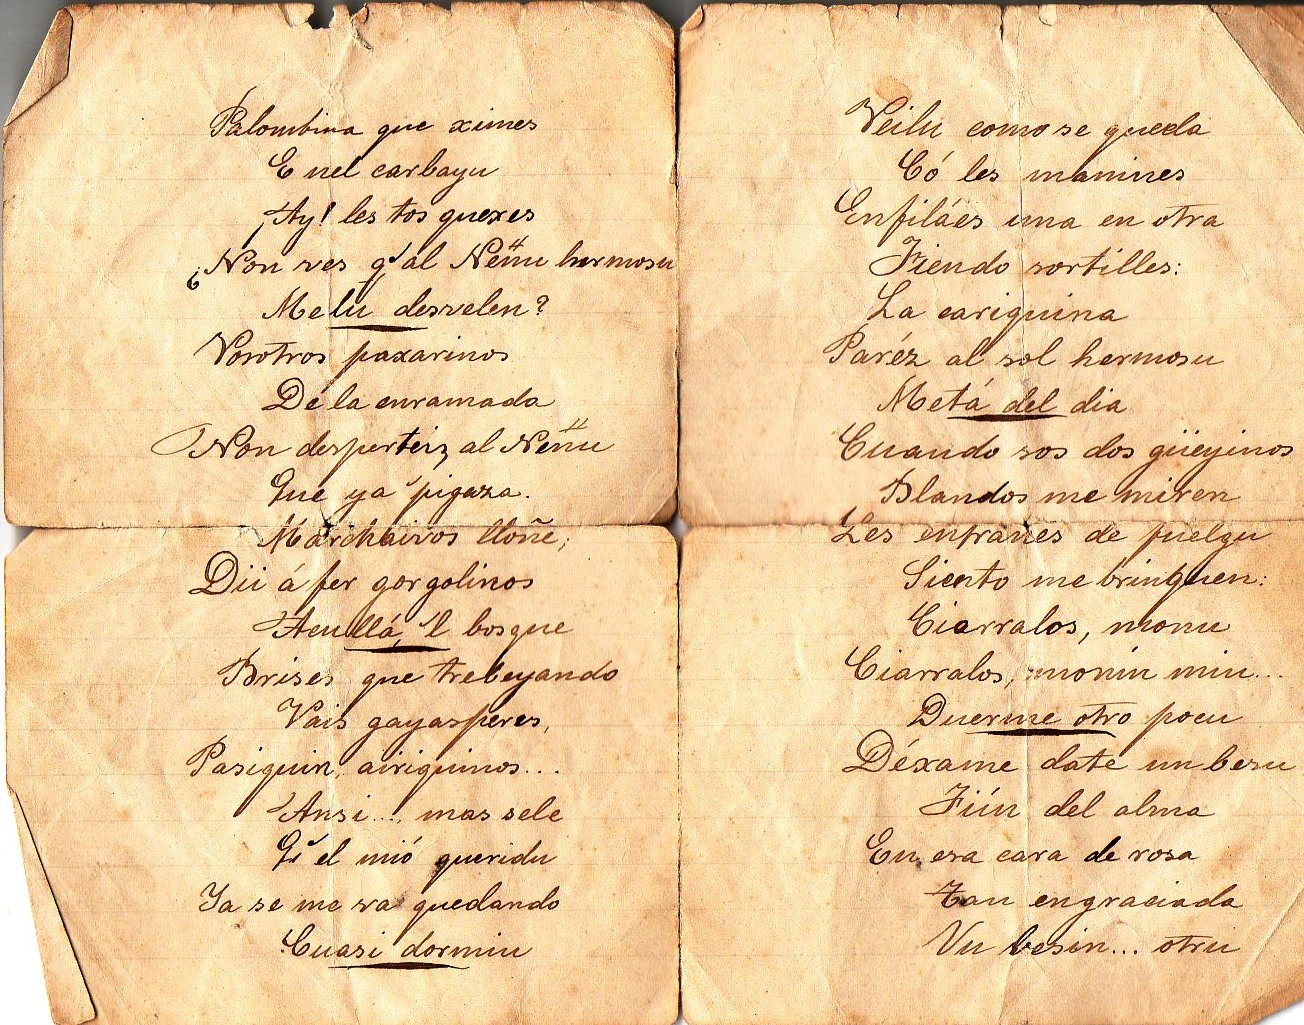 Palombina que ximes
E nel carbayu
¡Ay! les tos quexes
¿Non ves q' al Neñu hermosu
Melu desvelen?
Vosotros paxarinos
De la enramada
Non desperteiz al Neñu
Que ya pigaza.
Marchaivos lloñe;
Dii á fer gorgolinos
Acullá, 'l bosque
Brises que trebeyando
Vais gayasperes,
Pasiquin, airiquinos...
Ansi... mas sele
Q' el mió queridu
Ya se me va quedando
Cuasi dormiu
Veilu como se queda
Có les manines
Enfiláes una en otra
Fiendo sortilles:
La cariquina
Paréz al sol hermosu
Metá del dia
Cuando sos dos güeyinos
Blandos me miren
Les entrañes de puelgu
Siento me brinquen:
Ciarralos, monu
Ciarralos, monín miu...
Duerme otro pocu
Déxame date un besu
Fiín del alma
En esa cara de rosa
Tan engraciada
Vu besin... otru